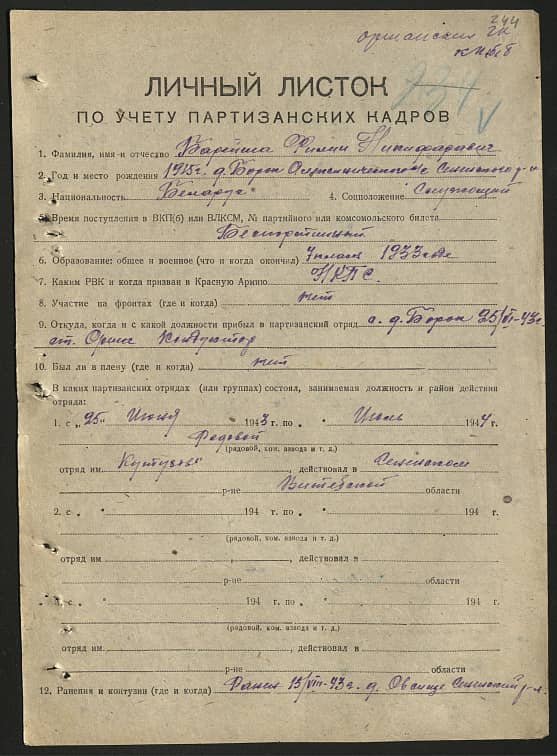 244
оршанский
734
ЛИЧНЫЙ ЛИСТОК
ПО УЧЕТУ ПАРТИЗАНСКИХ КАДРОВ
1. Фамилия, имя и отчество Барейша Филип Никифорович
2. Год и место рождения 1915г. д. Борок Сенненского р-н
3. Национальность Беларус 4. Соцположение Служащий
5. Время поступления в ВКП(б) или ВЛКСМ, № партийного или комсомольского билета
Беспартийный
6. Образование: общее и военное (что и когда окончил) 7 класс 1933 годе
7. Каким РВК и когда призван в Красную Армию НКПС.
8. Участие на фронтах (где и когда) нет
9. Откуда, когда и с какой должности прибыл в партизанский отряд с. д. Борок 25/VI-43г.
ст. Орша Кондуктор
10. Был ли в плену (где и когда) нет
В каких партизанских отрядах (или группах) состоял, занимаемая должность и район действия
отряда:
1. с „25" Июня 1943 г. по „ " Июль 1944 г.
Рядовой
(рядовой, ком. взвода и т. д.)
отряд им. Кутузова, действовал в Сенненском
р-не Витебской области
2. с „ " 194 г. по „ " 194 г.
(рядовой, ком. взвода и т. д.)
отряд им , действовал в
р-не области
3. с „ " 194 г. по „ " 194 г.
(рядовой, ком. взвода и т. д.)
отряд им. , действовал в
р-не области
12. Ранения и контузии (где и когда) Ранен 15/VIII-43г. д. Овсище Сенненский р-н.